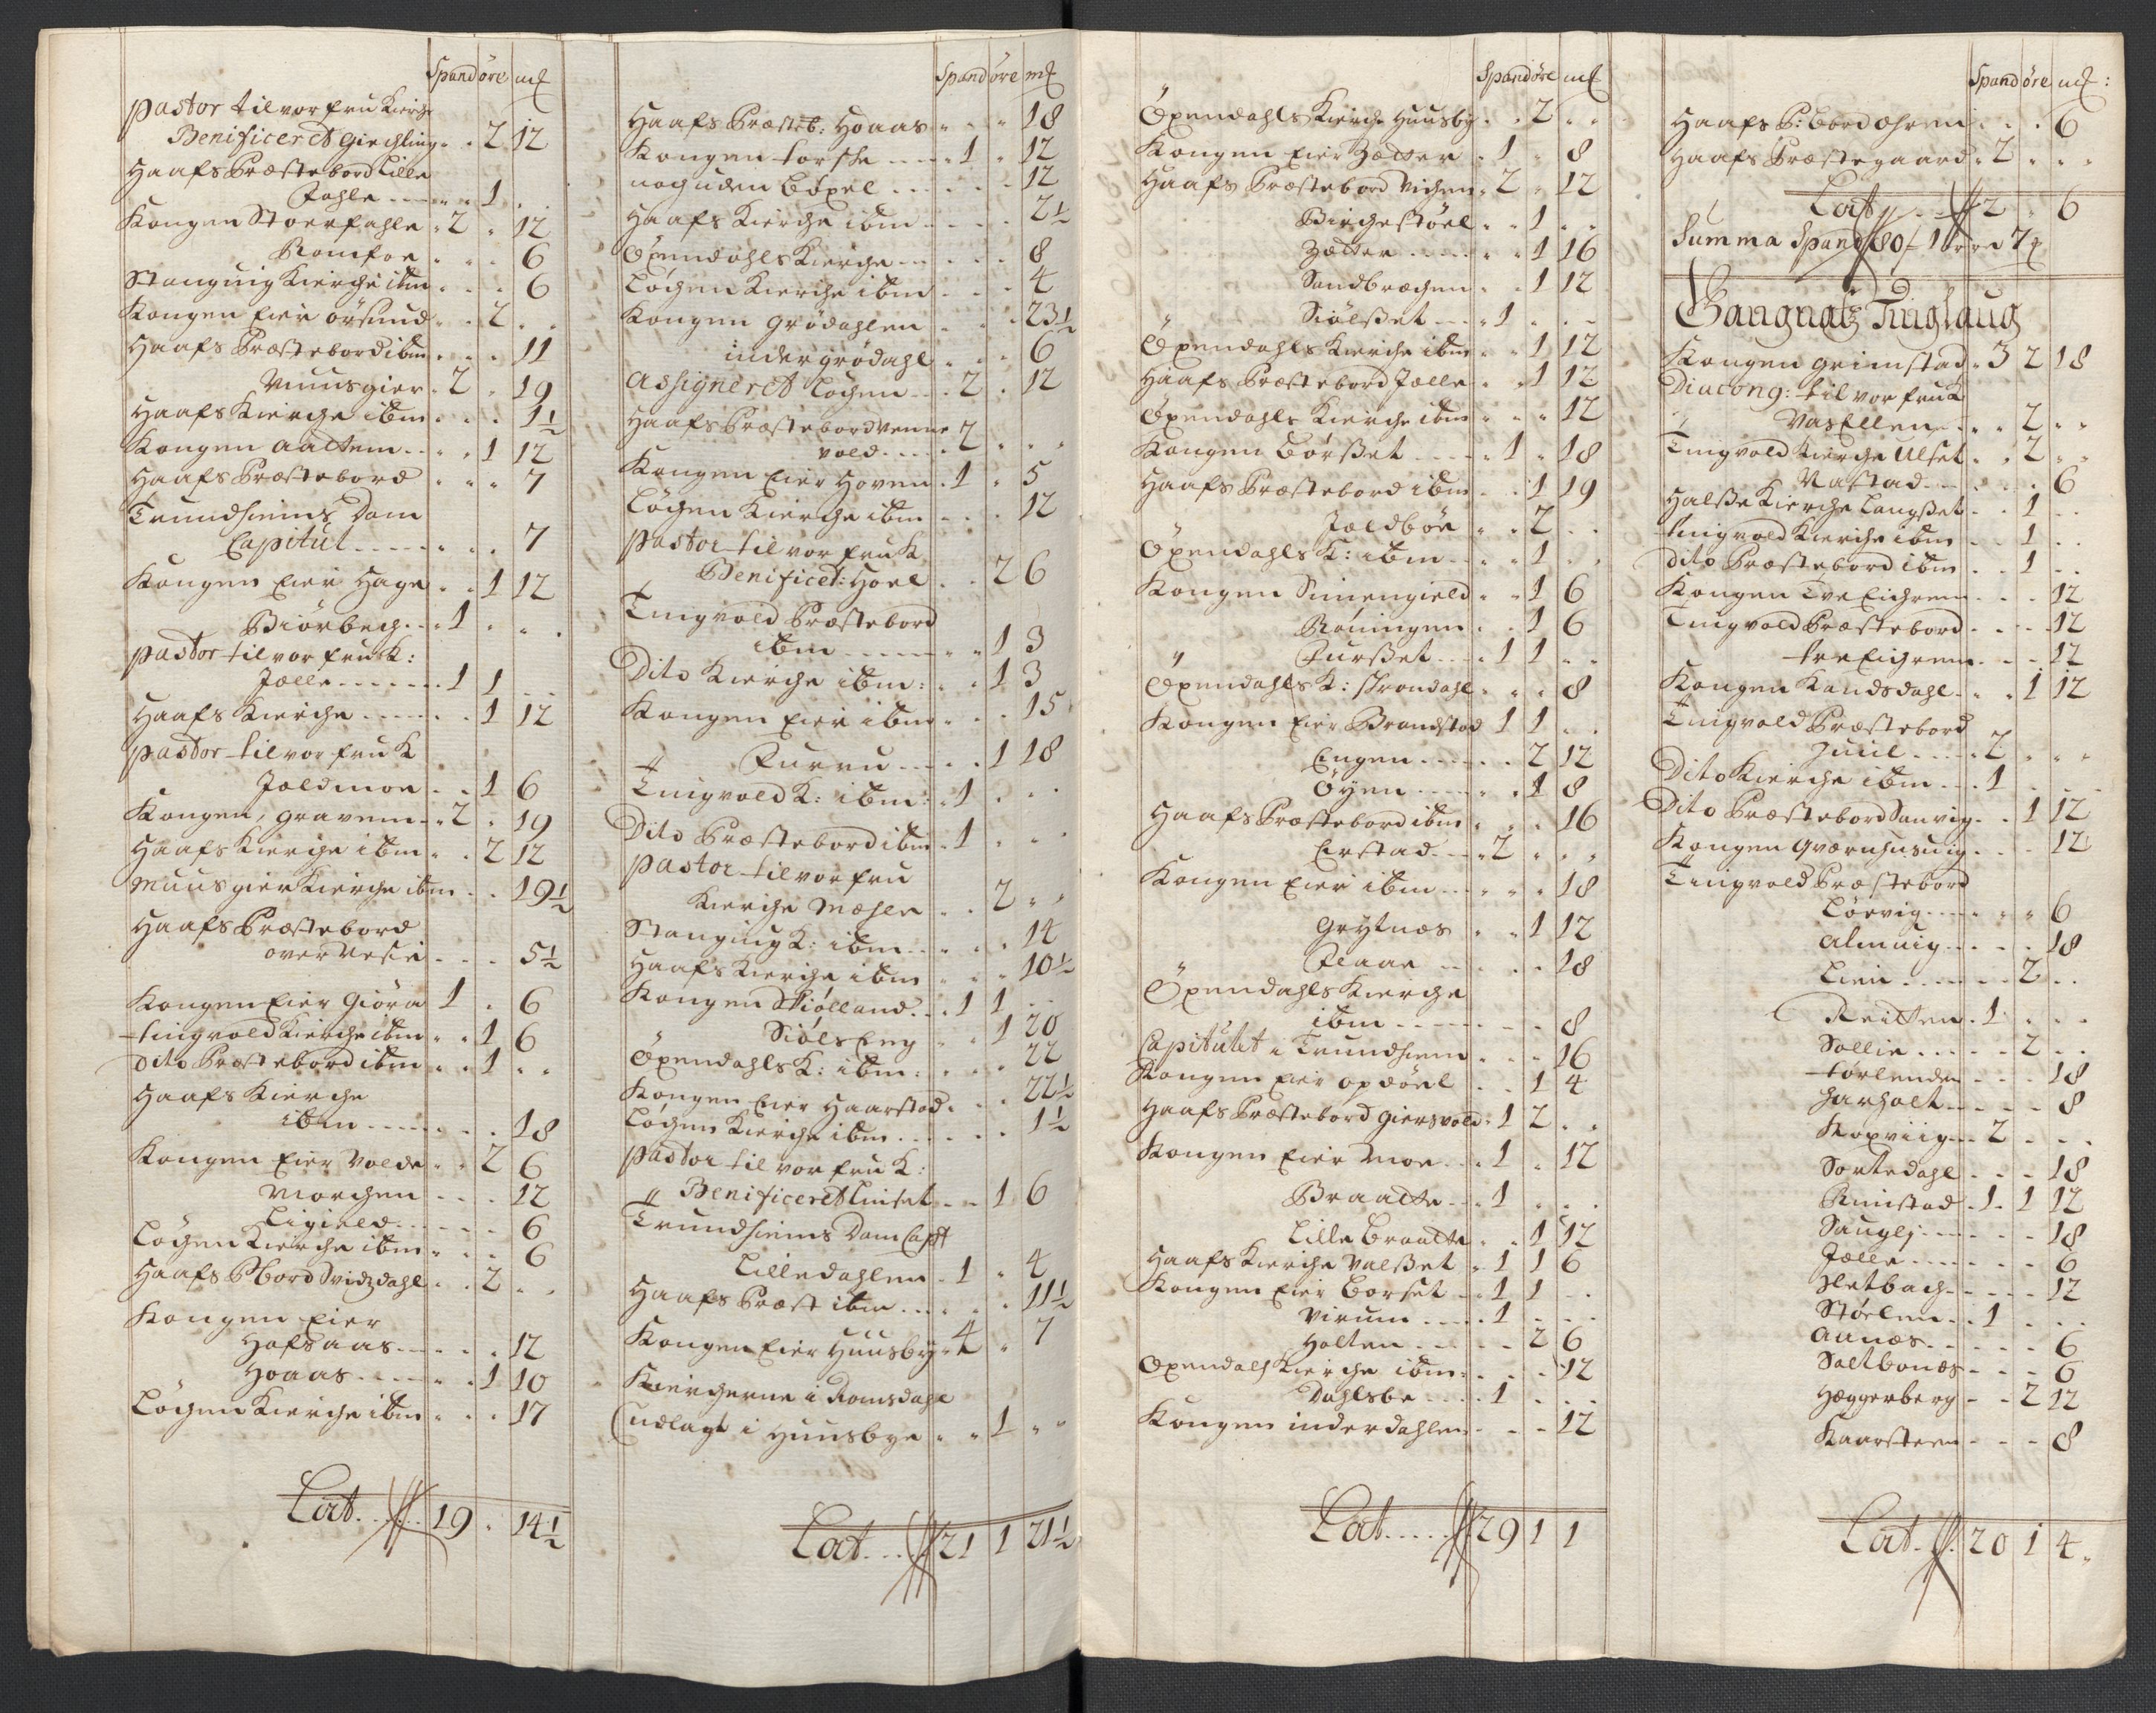 Spand öre mƺ
Pastor til vor frue Kierche
Benificeret Giechling . . 2 12
Haafs Præstebord Lille
Fahle . . 1 .
Kongen Stoerfahle . 2 . 12
Romfoe . . . 6
Stanguig Kierche ibm . . . 6
Kongen Eier örsund . . 2 . .
Haafs Præstebord ibm . . . 11
Muusgier . 2 . 19
Haafs Kierche ibm . . . 1½
Kongen Aalten . . 1 12
Haafs Præstebord . . . 7
Trundhiems Dom
Capitul . . . 7
Kongen Eier Hage . . 1 12
Biörbech . 1 . .
Pastor til vor frue K:
Jælle . 1 1 . .
Haafs Kierche . . 1 12
Pastor til vor frue K
Joldmoe . . 1 6
Kongen, Gravem . 2 . 19
Haafs Kierche ibm . . 2 12
Muusgier Kierche ibm . . 19½
Haafs Præstebord
over Vesie . . . 5½
Kongen Eier Giöra 1 . 6
Tingvold Kierche ibm . . 1 6
Dito Præstebord ibm . . 1 . .
Haafs Kierche
ibm . . . 18
Kongen Eier Volde . . 2 6
Morchen . . . 12
Ligield . . . 6
Löchen Kierche ibm . . . 6
Haafs P bord Svidzdahl . . 2 . .
Kongen Eier
Hofsaas . . . 12
Hoaas . . 1 10
Löchen Kierche ibm . . . 17
Lat. 19 . 14½
Spand öre mƺ
Haafs Præsteb: Hoaas . . . 18
Kongen Torske . 1 . 12
noch uden Böxel . . . 12
Haafs Kierche ibm . . . 2½
Öxendahls Kierche . . . 8
Löchen Kierche ibm . . . 4
Kongen Grödahlen . . . 23½
inder grödahl . . . 6
Assigneret Löchen . 2 . 12
Haafs Præstebord Venne
vold . 2 . .
Kongen Eier Hoven . 1 . 5
Löchen Kierche ibm . . . 12
Pastor til vor frue K
Benificet: Hoel . . 2 6
Tingvold Præstebord
ibm . . 1 3
Dito Kierche ibm: . . 1 3
Kongen Eier ibm . . . 15
Furru . . 1 18
Tingvold K: ibm: . 1 . .
Dito Præstebord ibm . 1 . .
Pastor til vor frue
Kierche Mæhle . . 2 . .
Stanguig K: ibm . . . 14
Haafs Kierche ibm . . . 10½
Kongen Skiölland . 1 1 . .
Siölseng . . 1 20
Öxendahls K: ibm: . . . 22
Kongen Eier Haarstad . . . 22½
Löchen Kierche ibm . . . 1½
Pastor til vor frue K:
Benificeret Linset . . 1 6
Trundhiems Dom Capit
Lilledahlen . 1 . 4
Haafs Præst ibm . . . 11½
Kongen Eier Huusby . 4 . 7
Kierchene i Romsdahl
udlagt i Huusbye . . 1 . .
Lat. 21 1 21½
Spand öre mƺ
Öxendahls Kierche Huusby . . 2 . .
Kongen Eier Zætter . 1 . 8
Haafs Præstebord Vichen . 2 . 12
Birchestöel . . 1 . .
Zætter . . 1 16
Sandbrechen . . 1 12
Siölsset . 1 . .
Öxendahls Kierche ibm . . 1 12
Haafs Præstebord Jælle . . 1 12
Öxendahls Kierche ibm . . . 12
Kongen Börsset . 1 . 18
Haafs Præstebord ibm . . 1 19
Joldböe . . 2 . .
Öxendahls K: ibm . . 1 . .
Kongen Simengield . . 1 6
Röningen . . 1 6
Fursset . 1 1 . .
Öxendahls K: Skrondahl . . . 8
Kongen Eier Brandstad 1 1 . .
Engen . . 2 12
Öyen . . 1 8
Haafs Præstebord ibm . . . 16
Erstad . 2 . .
Kongen Eier ibm . . . 18
Grytnæs . . 1 12
Flaae . . . 18
Öxendahls Kierche
ibm . . . 8
Capitulet i Trundhiem . . . 16
Kongen Eier opdöel . . 1 4
Haafs Præstebord Giersvold . 1 2 . .
Kongen Eier Moe . 1 . 12
Braatte . 1 . . .
Lille Braatte . . 1 12
Haafs Kierche Valsset . 1 1 6
Kongen Eier Borset . 1 1 . .
Virum . 1 . . .
Holten . . 2 6
Öxendals Kierche ibm: . . . 12
Dahlsbe . 1 . . .
Kongen inderdahlen . . . 12
Lat. 29 1 1
Spand öre mƺ:
Haafs P: bord Ohren . . . 6
Haafs Præstegaard . 2 . .
Lat. 2 . 6
Summa Spand 80 - 1 öre 7 ƺ
Gangnatz Tinglaug
Kongen Grimstad . 3 2 18
Diacong: til vor frue K
Vasellen . . 2 . .
Tingvold Kierche Ulset . . 2 . .
Nastad . . . 6
Halsse Kierche Langsset . . 1 . .
Tingvold Kierche ibm . . 1 . .
Dito Præstebord ibm . . 1 . .
Kongen Tre Eichrem . . . 12
Tingvold Præstebord . . . 12
tre Eichrem . . . 12
Kongen Kandsdahl . . 1 12
Tingvold Præstebord
Juul . 2 . .
Dito Kierche ibm . 1 . . .
Dito Præstebord Sanvig . . 1 12
Kongen Qværnhusuig . . . 12
Tingvold Præstebord
Lörvig . . . 6
Almuig . . . 18
Lien . . 2 . .
Reitten . 1 . . .
Sollie . . 2 . .
Torlenden . . . 18
Harholt . . . 8
Koxviig . 2 . . .
Sortedahl . . . 18
Rimstad . 1 1 12
Sauglj . . . 18
Jælle . . . 6
Sletbach . . . 12
Stöelen . 1 . . .
Aanæs . . . 6
Saltbonæs . . . 6
Hæggerberg . . 2 12
Kaarsteen . . . 8
Lat. 20 1 4